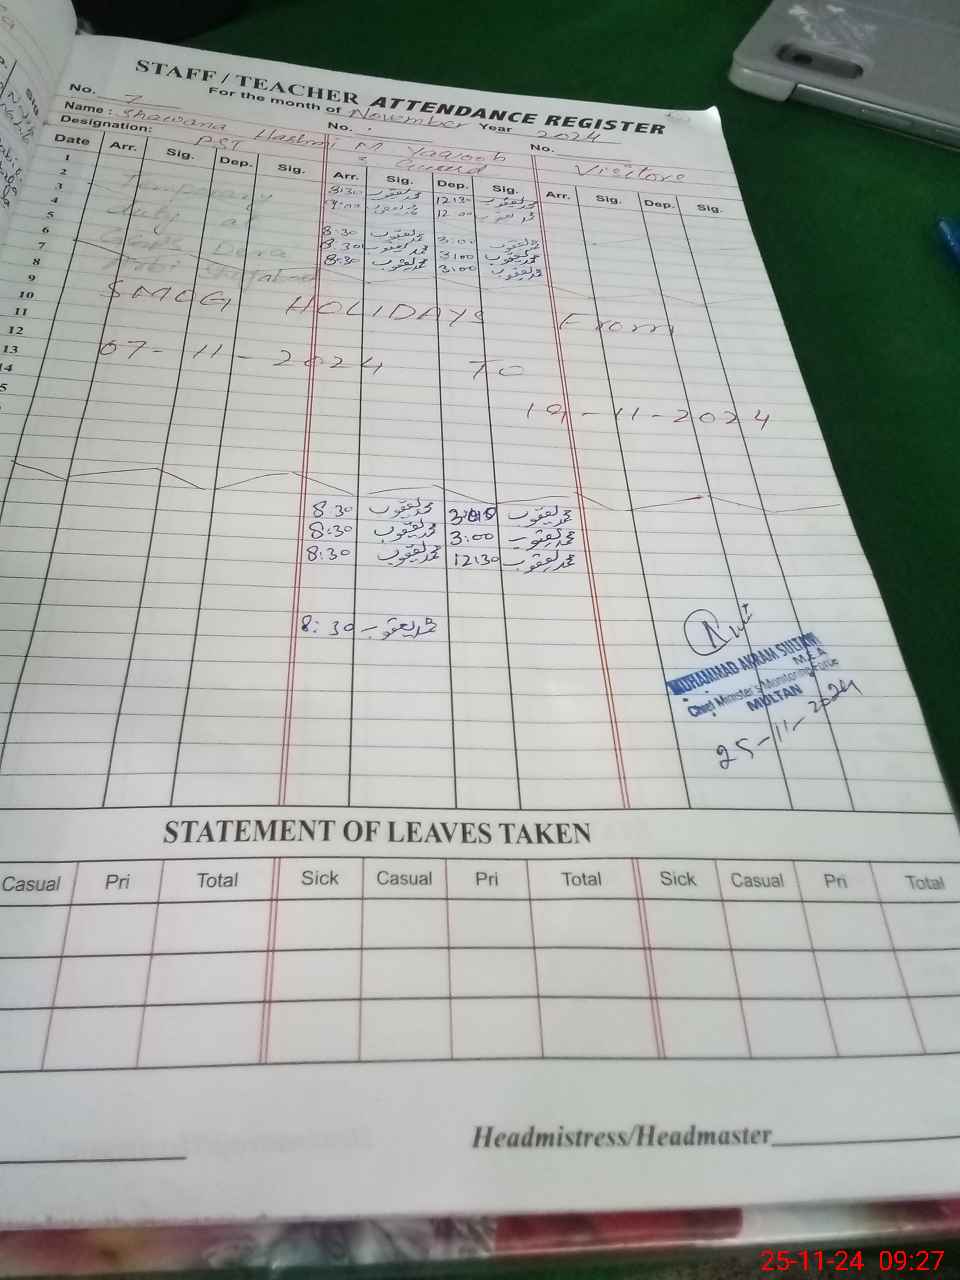 STAFF / TEACHER ATTENDANCE REGISTER
For the month of November Year 2024
No. 7 No. No.
Name: Shawana Hashmi M Yaqoob Visitors
Designation: PET Guard
Date Arr. Sig. Dep. Sig. Arr. Sig. Dep. Sig. Arr. Sig. Dep. Sig.
1 8:30 محمد یعقوب 12:30 محمد یعقوب
2 9:00 محمد یعقوب 12:00 محمد یعقوب
3 Temporary
4 8:30 محمد یعقوب 3:00 محمد یعقوب
5 duty at 8:30 محمد یعقوب 3:00 محمد یعقوب
6 8:30 محمد یعقوب 3:00 محمد یعقوب
7
8
9
10 SMOG HOLIDAYS From
11
12
13 07-11-2024 To
14
5
19-11-2024
8:30 محمد یعقوب 3:00 محمد یعقوب
8:30 محمد یعقوب 3:00 محمد یعقوب
8:30 محمد یعقوب 12:30 محمد یعقوب
8:30 محمد یعقوب
MUHAMMAD AKRAM SULTANI
M.E.A
Chief Minister's Monitoring Force
MULTAN
25-11-2024
STATEMENT OF LEAVES TAKEN
Casual Pri Total Sick Casual Pri Total Sick Casual Pri Total
Headmistress/Headmaster
25-11-24 09:27